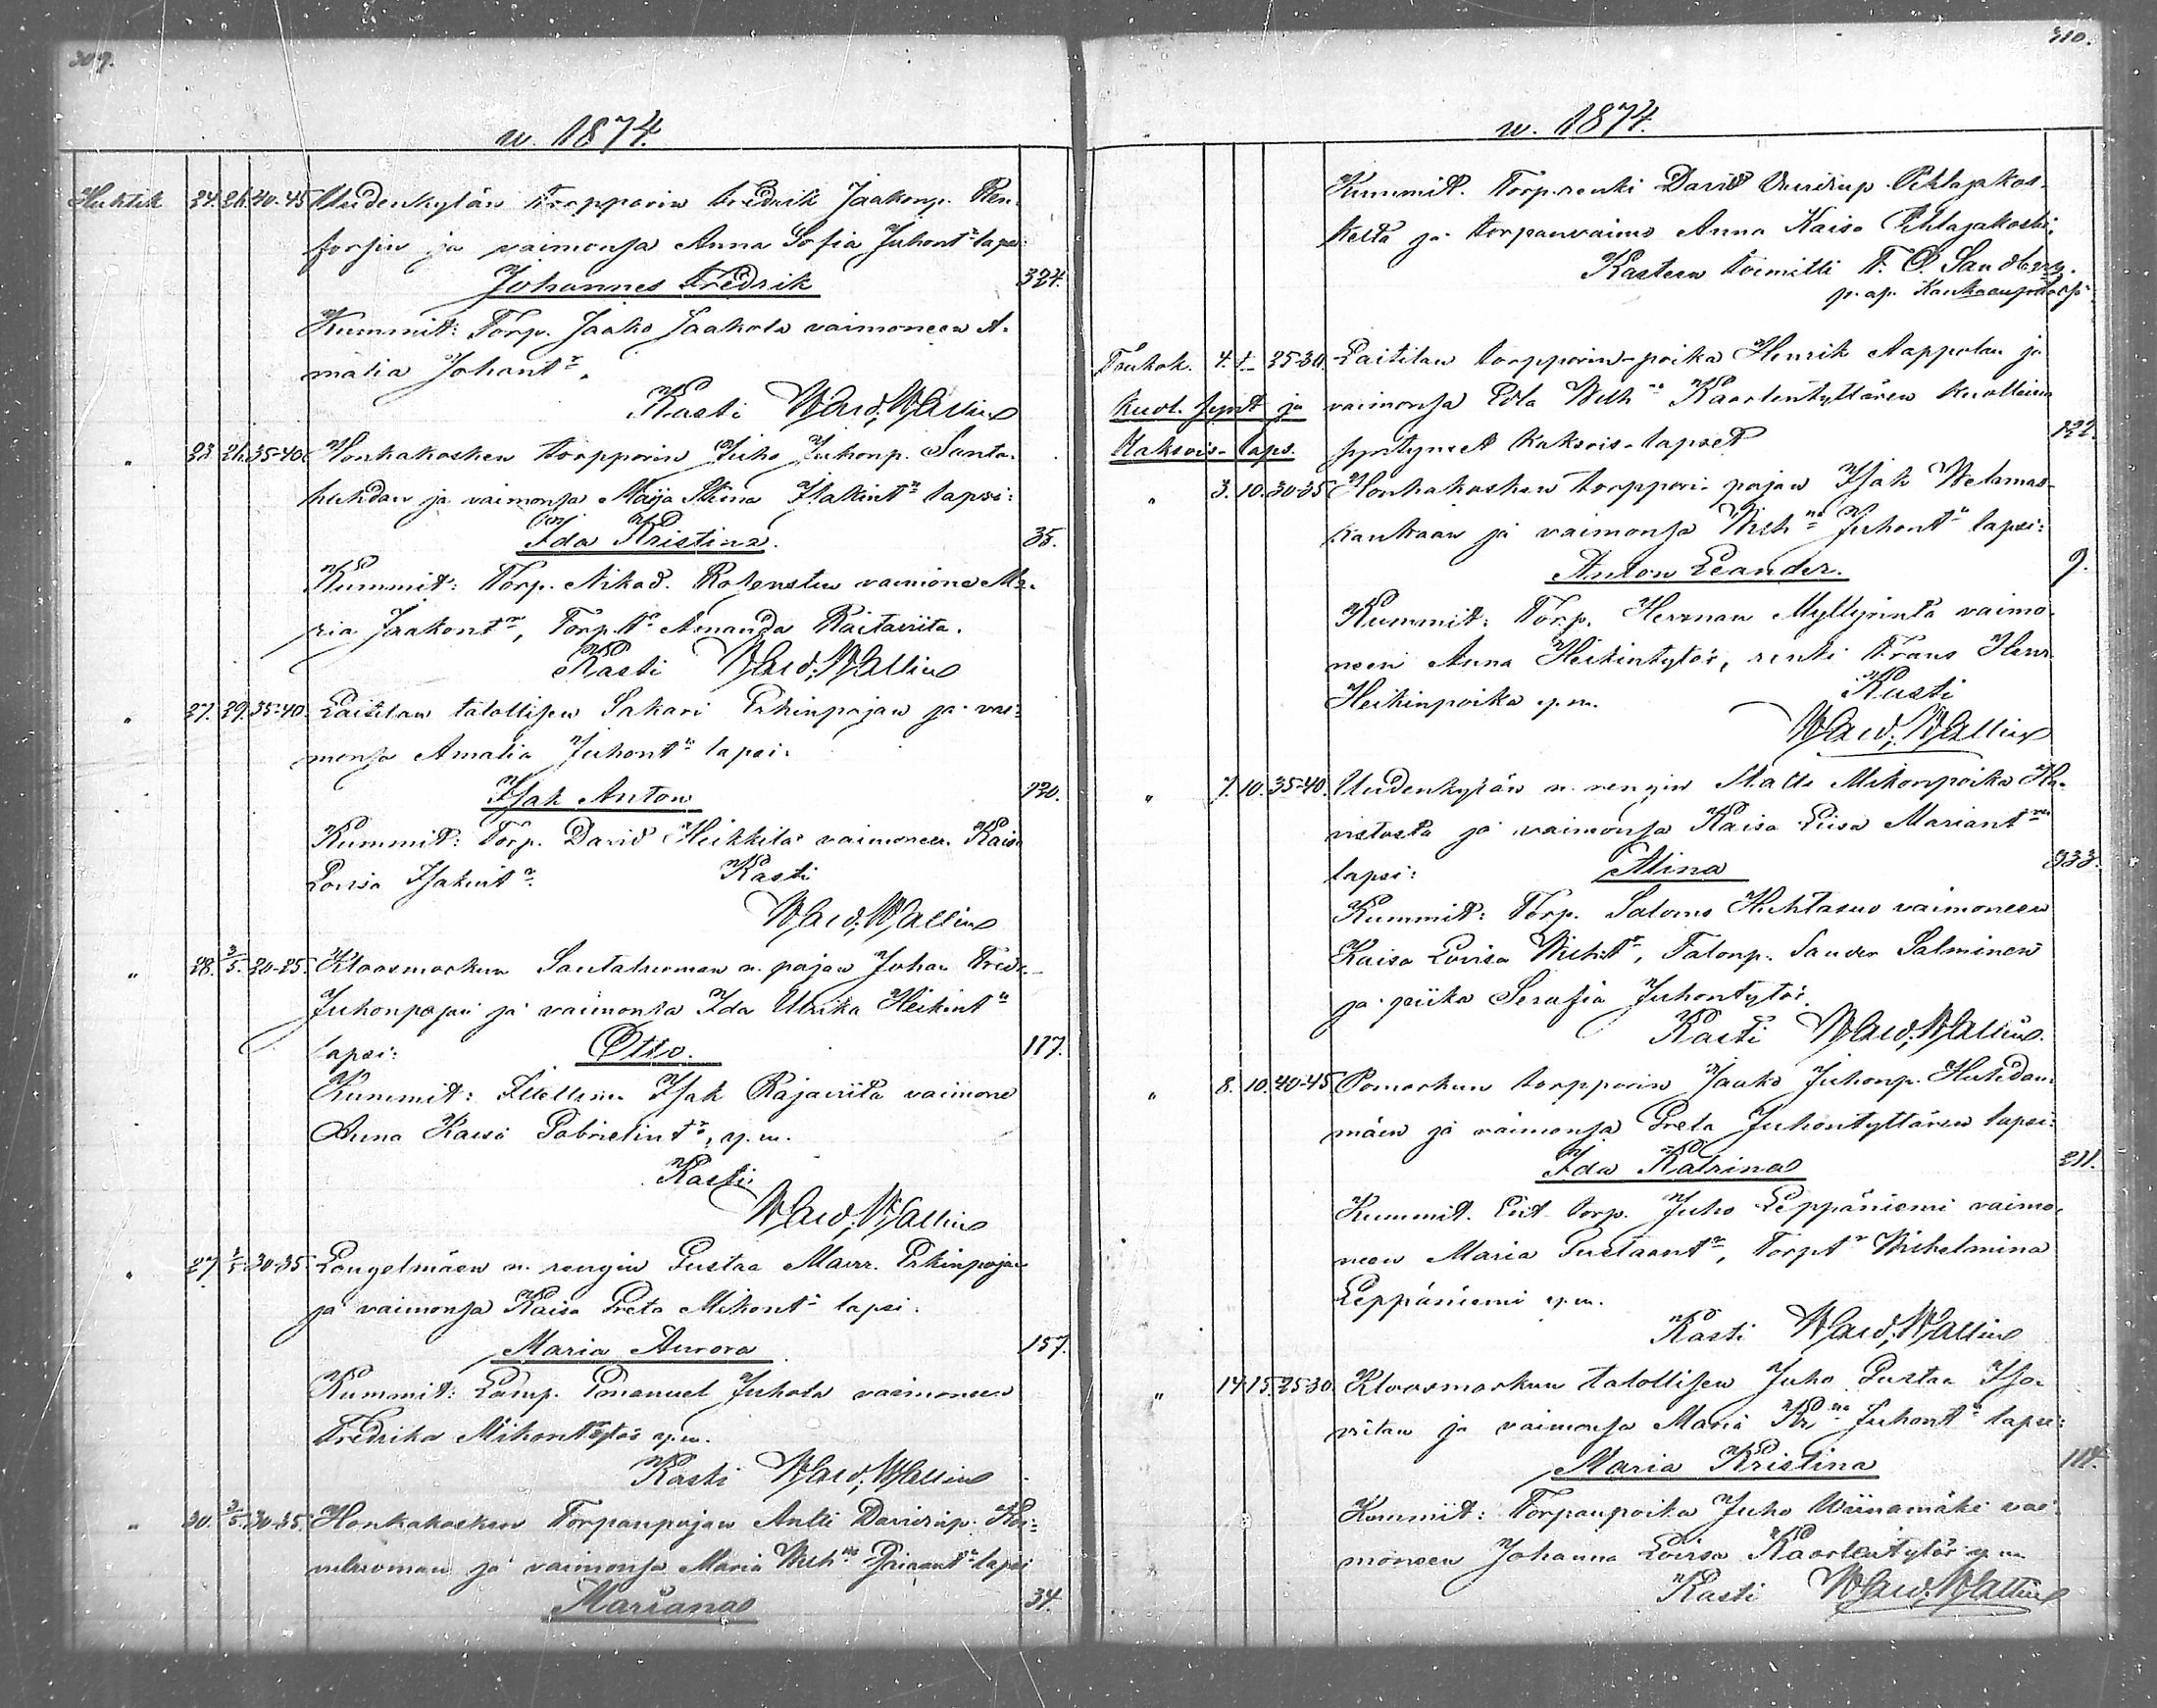 309.
w. 1874.
Huhtik 24. 26. 40-45 Uudenkylän torpparin Fredrik Jaakonp. Ren-
forsin ja vaimonsa Anna Sofia Juhont:n lapsi:
Johannes Fredrik 324.
Kummit: Torp. Jaako Jaakola vaimoneen A-
malia Johant:r.
Kasti Wald. Wallin
" 23. 26. 35-40 Honkakosken torpparin Juho Juhonp. Santa-
huhdan ja vaimonsa Maija Stiina Isakint:n lapsi:
Ida Kristina. 35.
Kummit: Torp. Nikod. vaimone Ma-
ria Jaakont:r, Torp. t:r Amanda Raitaviita.
Kasti Wald. Wallin
" 27. 29. 35-40. Laitilan talollisen Sakari Erkinpojan ja vai-
monsa Amalia Juhont:n lapsi:
Isak Anton 120.
Kummit: Torp. David Heikkilä vaimoneen Kaisa
Lovisa Isakint:r. Kasti
Wald. Wallin
" 28. 3/5. 20-25. Kloosmarkun Santaluoman n. pojan Johan Fredr.
Juhonpojan ja vaimonsa Ida Ulrika Heikint:n
lapsi: Otto. 117.
Kummit: Itsellinen Isak Rajaviita vaimone
Anna Kaisa Gabrielint:r, y.m.
Kasti
Wald. Wallin
" 27. 30-35. Längelmäen n. rengin Gustaa Erkinpojan
ja vaimonsa Kaisa Greta Mikont:n lapsi:
Maria Aurora 157.
Kummit: Lamp. Emanuel Juhola vaimoneen
Fredrika Mikontytär y.m.
Kasti Wald. Wallin
" 30. 3/5. 30-35. Honkakosken Torpanpojan Antti Davidinp.
ja vaimonsa Maria Wilh:na lapsi
Mariana 34.
310.
w. 1874.
Kummit. Torp.renki David Davidinp. Pihlajakos-
kelta ja torpanvaimo Anna Kaisa Pihlajakoski.
Kasteen toimitti F. O. Sandberg.
p. ap. Kankaanpäässä
Toukok. 4. 25-30. Laitilan torpparin-poika Henrik Aappolan ja
Kuol. synt. ja vaimonsa Eva Wilh:na Kaarlentyttären kuolleina
Kaksois-laps. syntyneet kaksois-lapset 122.
" 3. 10. 30-35 Honkakosken torppari-pojan Isak Welamas-
kankaan ja vaimonsa Wilh:na Juhont:n lapsi:
Anton Leander. 9.
Kummit: Torp. Herman Myllyrinta vaimo-
neen Anna Heikintytär, renki Frans Henr.
Heikinpoika y.m. Kasti
Wald. Wallin
" 7. 10. 35-40. Uudenkylän n. rengin Matts Mikonpoika Ha-
vistosta ja vaimonsa Kaisa Liisa Mariant:ren
lapsi: Miina 333.
Kummit: Torp. Salomo Huhtasuo vaimoneen
Kaisa Lovisa Mikt:r, Talonp. Sander Salminen
ja piika Serafia Juhontytär.
Kasti Wald. Wallin.
" 8. 10. 40-45 Pomarkun torpparin Jaako Juhonp. Huhdan-
mäen ja vaimonsa Greta Juhontyttären lapsi:
Ida Katrina 211.
Kummit. Ent. torp. Juho Leppäniemi vaimo-
neen Maria Gustaant:r, Torp.t:r Wilhelmina
Leppäniemi y.m.
Kasti Wald. Wallin
" 14 15. 25-30. Kloosmarkun talollisen Juho Gustaa Iso-
viitan ja vaimonsa Maria Kr:na Juhont:n lapsi:
Maria Kristina 114.
Kummit: Torpanpoika Juho Wiinamäki vai-
moneen Johanna Lovisa Kaarlentytär y.m.
Kasti Wald. Wallin